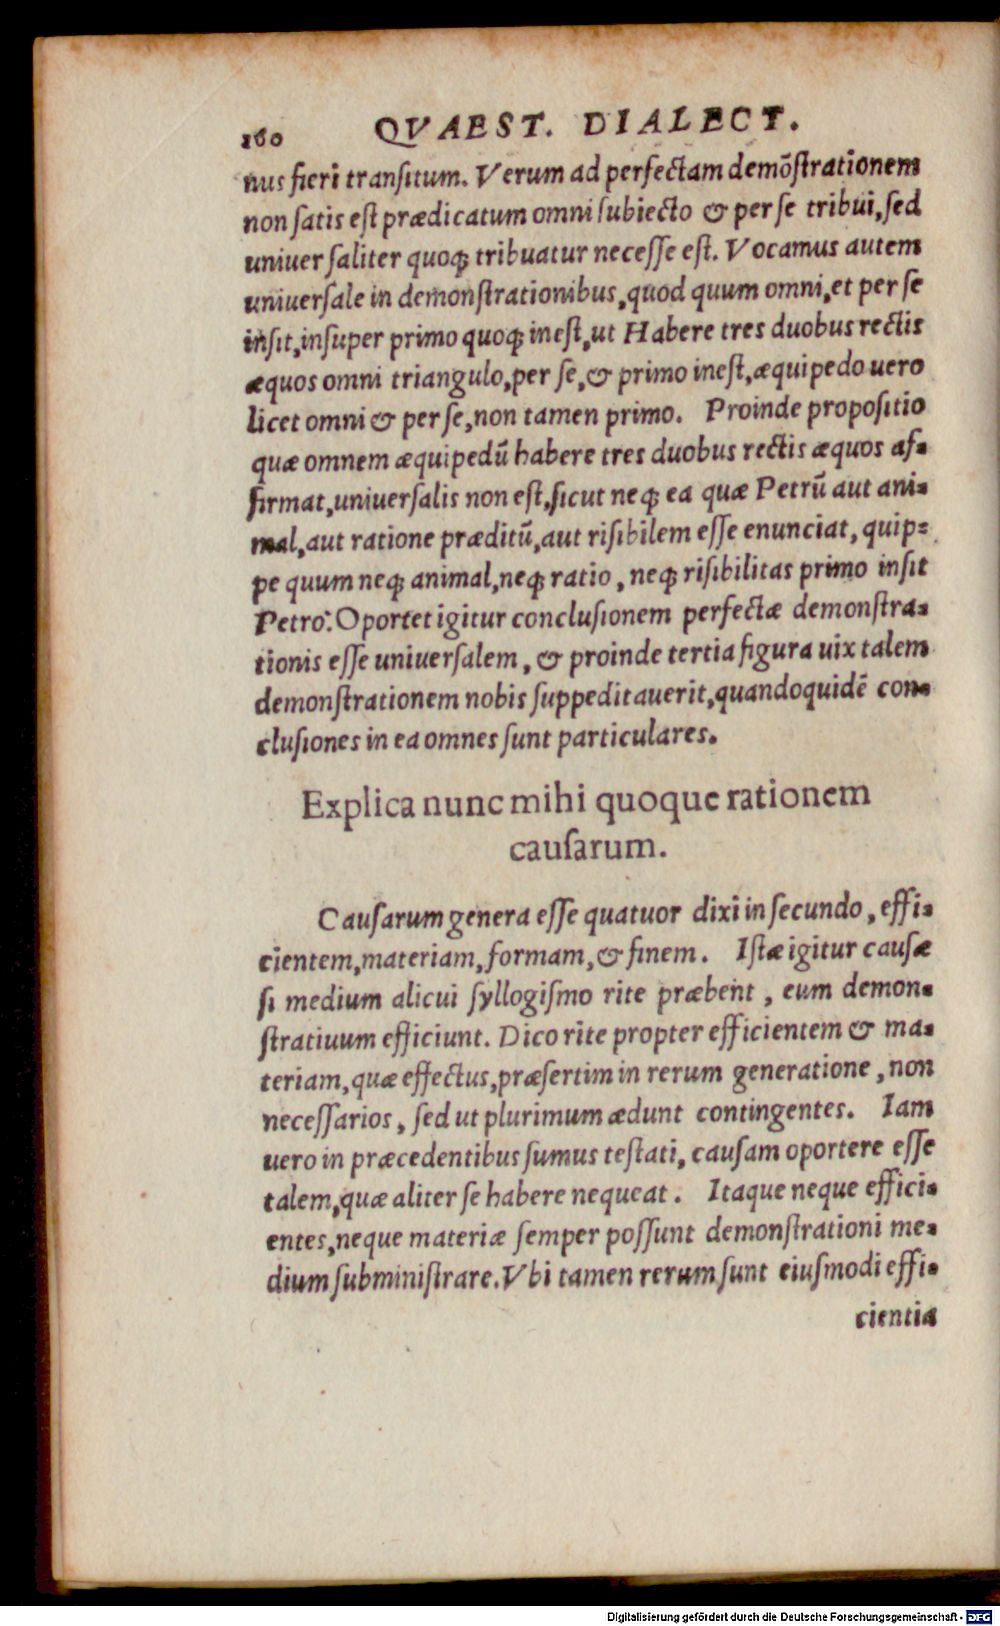 160 QVAEST. DIALECT.
nus fieri transitum. Verum ad perfectam demõstrationem
non satis est prædicatum omni subiecto & per se tribui, sed
uniuersaliter quoq; tribuatur necesse est. Vocamus autem
uniuersale in demonstrationibus, quod quum omni, et per se
insit, insuper primo quoq; inest, ut Habere tres duobus rectis
æquos omni triangulo, per se, & primo inest, æquipedo uero
licet omni & per se, non tamen primo. Proinde propositio
quæ omnem æquipedũ habere tres duobus rectis æquos af-
firmat, uniuersalis non est, sicut neq; ea quæ Petrũ aut ani-
mal, aut ratione præditũ, aut risibilem esse enunciat, quip-
pe quum neq; animal, neq; ratio, neq; risibilitas primo insit
Petro: Oportet igitur conclusionem perfectæ demonstra-
tionis esse uniuersalem, & proinde tertia figura uix talem
demonstrationem nobis suppeditauerit, quandoquidẽ con-
clusiones in ea omnes sunt particulares.
Explica nunc mihi quoque rationem
causarum.
Causarum genera esse quatuor dixi in secundo, effi-
cientem, materiam, formam, & finem. Istæ igitur causæ
si medium alicui syllogismo rite præbent, eum demon-
stratiuum efficiunt. Dico rite propter efficientem & ma-
teriam, quæ effectus, præsertim in rerum generatione, non
necessarios, sed ut plurimum ædunt contingentes. Iam
uero in præcedentibus sumus testati, causam oportere esse
talem, quæ aliter se habere nequeat. Itaque neque effici-
entes, neque materiæ semper possunt demonstrationi me-
dium subministrare. Vbi tamen rerum sunt eiusmodi effi-
cientia
Digitalisierung gefördert durch die Deutsche Forschungsgemeinschaft - DFG